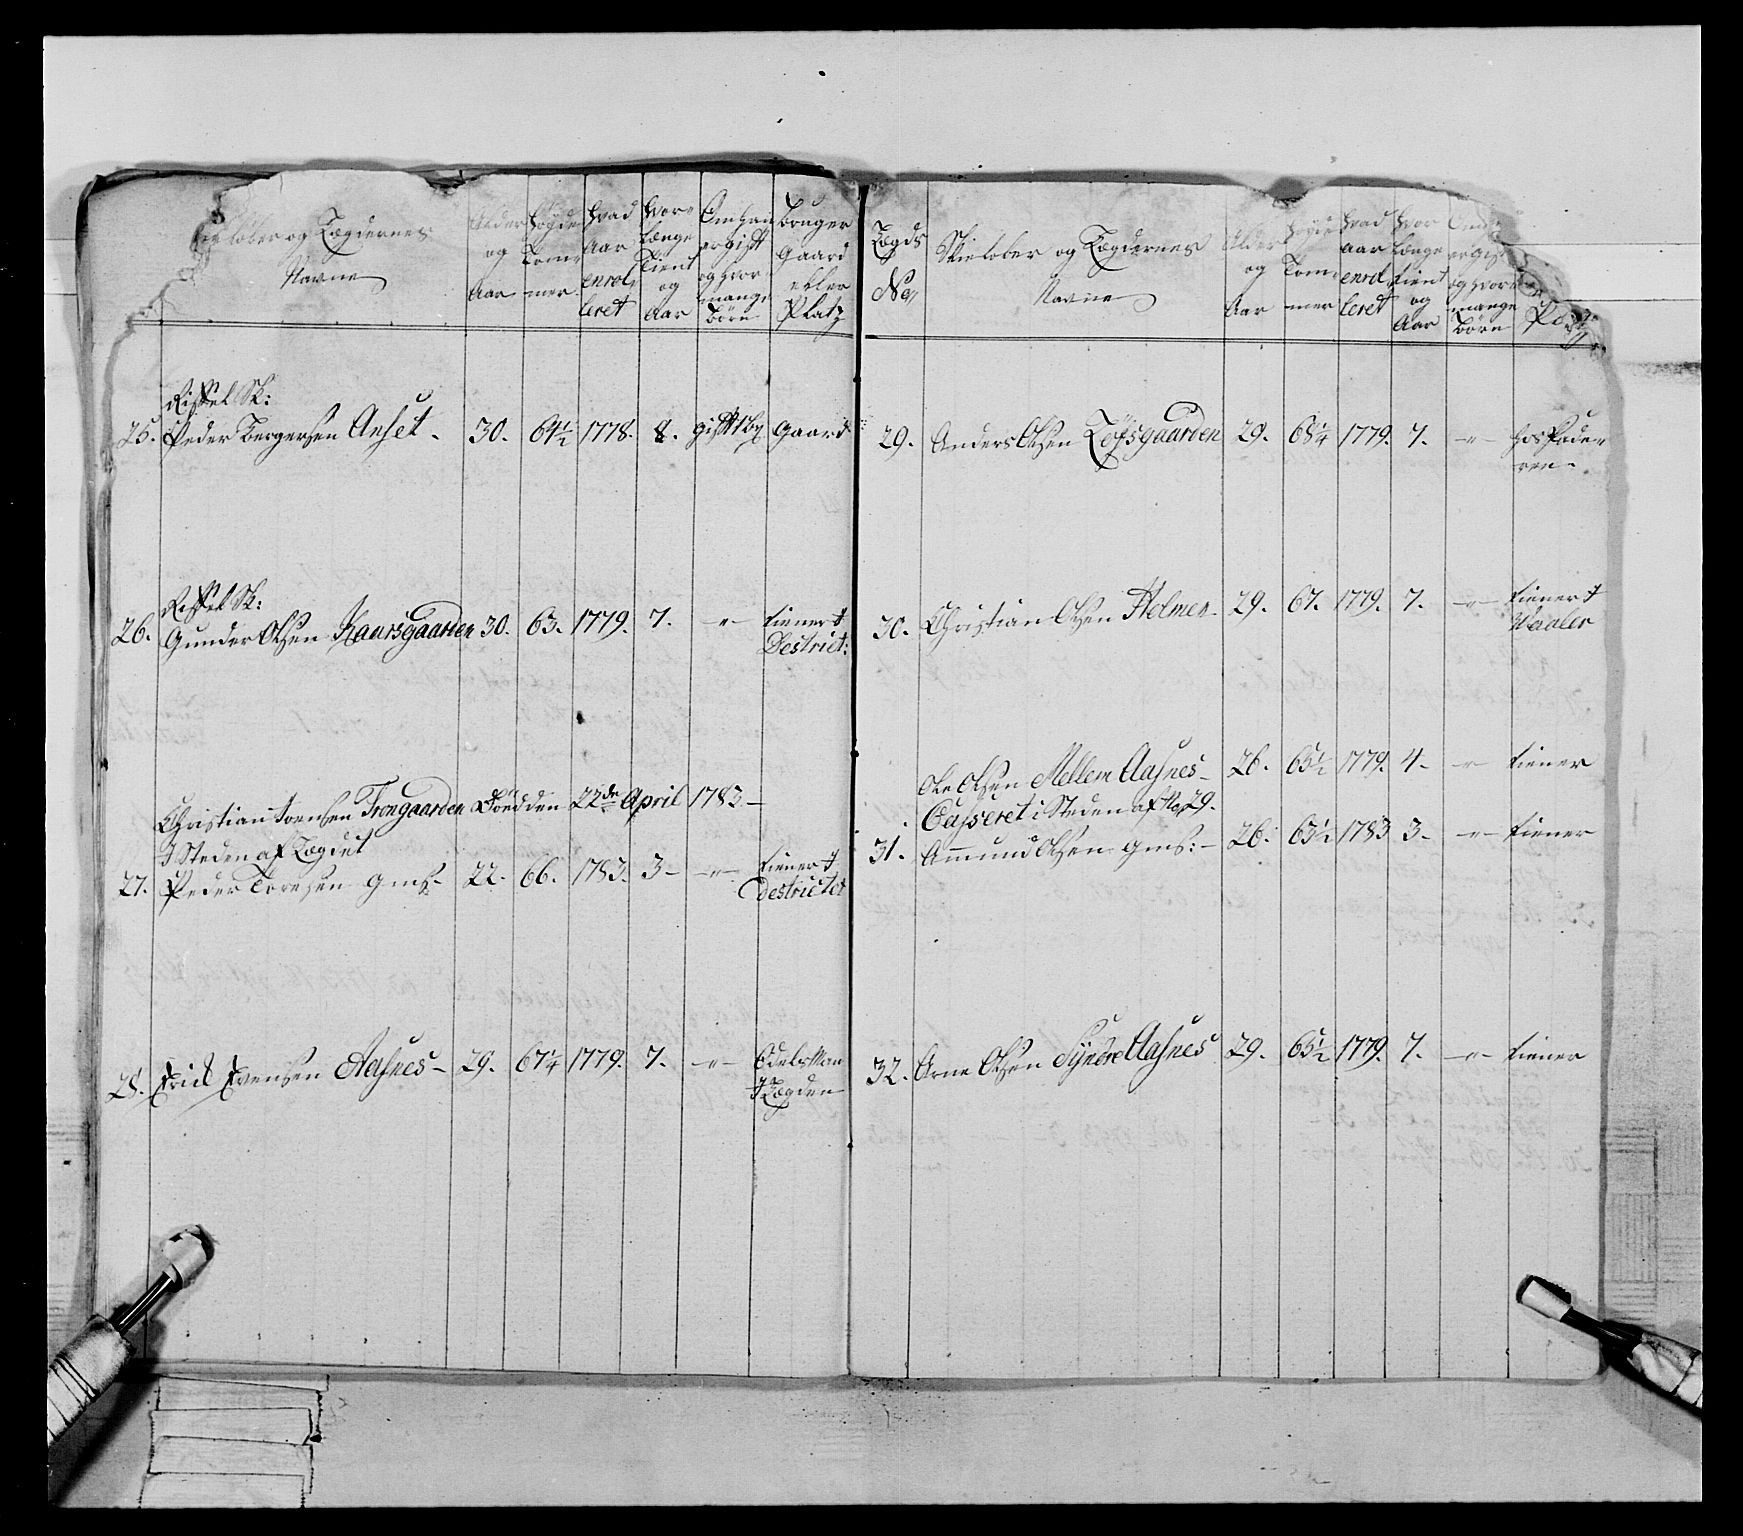 Skieløber og Lægdernes
Navne
Alder og Aar
Høyde Tommer
Hvad Aar enrolleret
Hvor længe tient og Aar
Om han er gift og hvor mange børn
bruger Gaard eller Platz
Riffel Sk:
25. Peder Bergersen Anset - 30. 64½ 1778. 8. gift 1 b. Gaard
Riffel Sk:
26. Gunder Olsen Kaarsgaarden 30. 63. 1779. 7. -"- tiener i
Destrict:
Christian Svensen Frongaarden Død den 22de April 1783 -
I Steden af Lægdet
27. Peder Toresen gms - 22. 66. 1783. 3 - -"- tiener i
destrictet
28. Erick Evensen Aasnes - 29. 67¼ 1779. 7. -"- Odels Man
I Lægden
Lægds
No
Skieløber og Lægdernes
Navne
Alder og Aar
Høyde Tommer
Hvad Aar enrolleret
Hvor længe tient og Aar
Om er gift og hvor mange børn
Platz
29. Anders Olsen Løfsgaarden 29. 68¼ 1779. 7. -"- hos Fade-
ren.
30. Christian Olsen Holmen - 29. 67. 1779. 7. -"- tiener i
Waaler
Ole Olsen Mellem Aasnes - 26. 65½ 1779. 4 - -"- tiener
Casseret i Steden af No 29.
31. Amund Olsen gms: - 26. 63½ 1783 3 - -"- tiener
32. Arne Olsen Syndre Aasnes 29. 65½ 1779. 7. -"- tiener